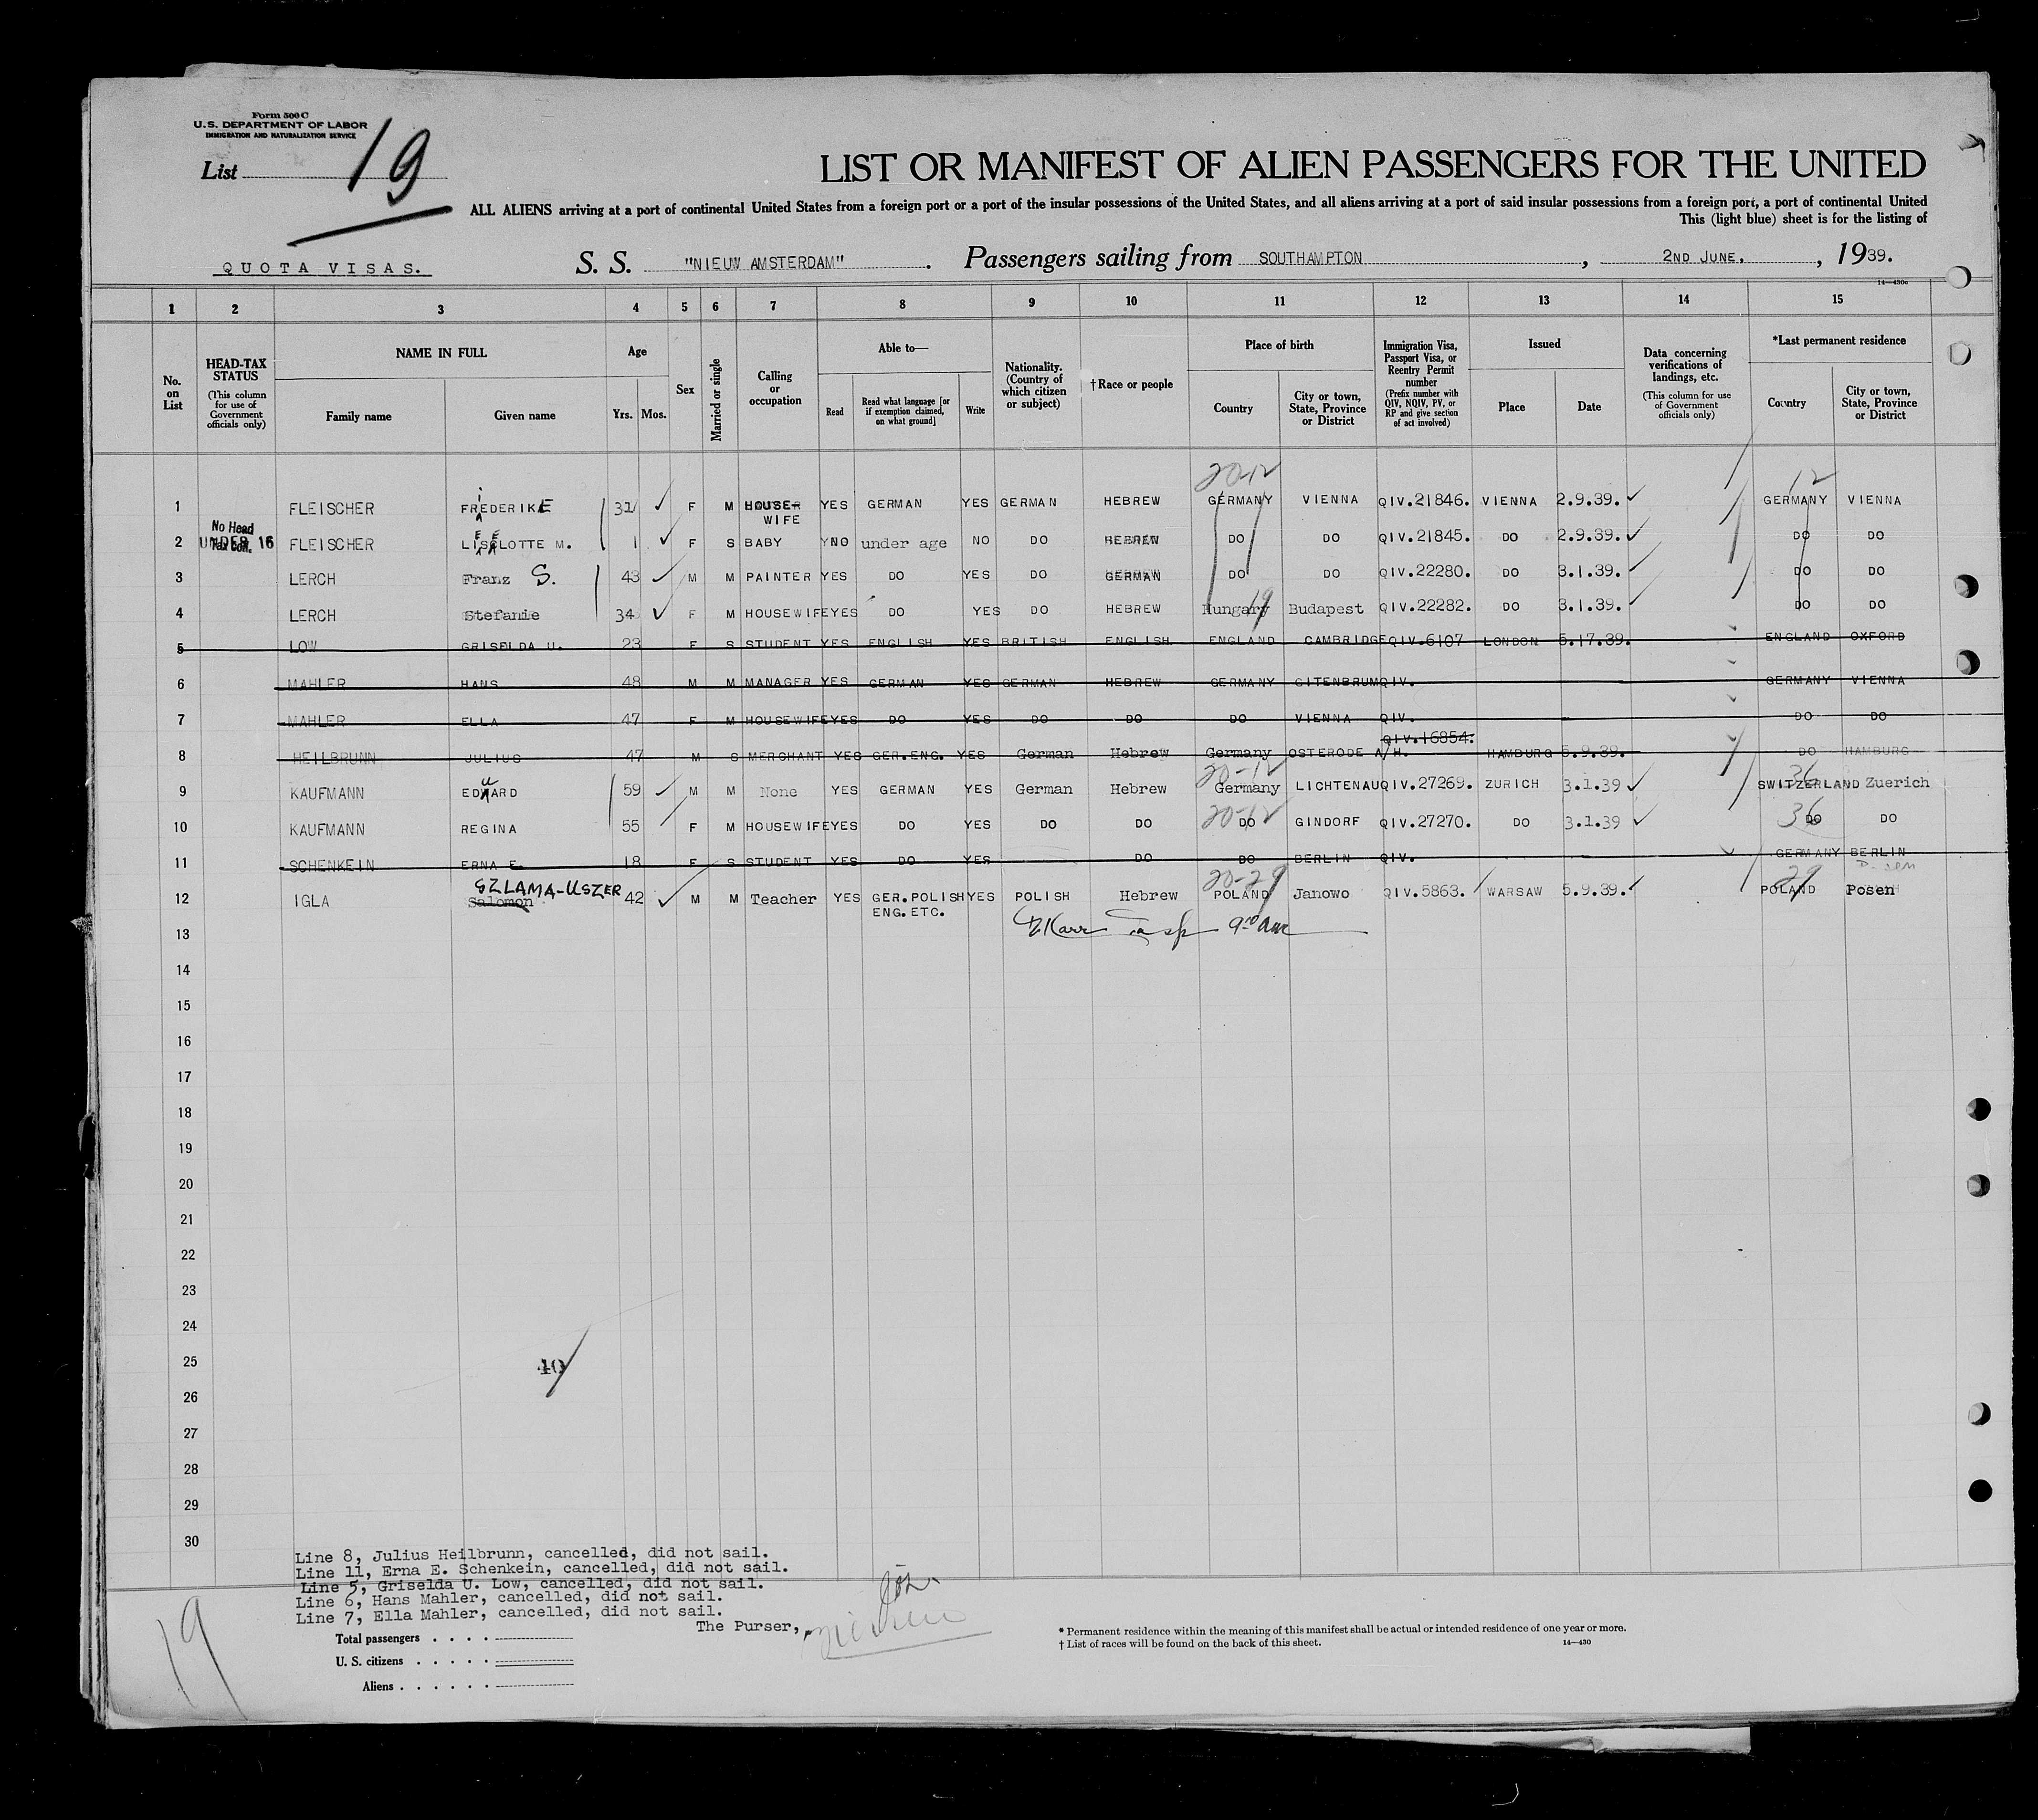 Form 500 C
U.S. DEPARTMENT OF LABOR
IMMIGRATION AND NATURALIZATION SERVICE
List 19
LIST OR MANIFEST OF ALIEN PASSENGERS FOR THE UNITED
ALL ALIENS arriving at a port of continental United States from a foreign port or a port of the insular possessions of the United States, and all aliens arriving at a port of said insular possessions from a foreign port, a port of continental United
This (light blue) sheet is for the listing of
QUOTA VISAS. S. S. "NIEUW AMSTERDAM". Passengers sailing from SOUTHAMPTON, 2ND JUNE, , 1939.
14—430c
1 2 3 4 5 6 7 8 9 10 11 12 13 14 15
No. on List
HEAD-TAX STATUS (This column for use of Government officials only)
NAME IN FULL
Family name Given name
Age
Yrs. Mos.
Sex
Married or single
Calling or occupation
Able to—
Read Read what language [or if exemption claimed, on what ground] Write
Nationality. (Country of which citizen or subject)
†Race or people
Place of birth
Country City or town, State, Province or District
Immigration Visa, Passport Visa, or Reentry Permit number (Prefix number with QIV, NQIV, PV, or RP and give section of act involved)
Issued
Place Date
Data concerning verifications of landings, etc. (This column for use of Government officials only)
*Last permanent residence
Country City or town, State, Province or District
20-12 12
1 FLEISCHER FREDERIKE 31 F M HOUSE-WIFE YES GERMAN YES GERMAN HEBREW GERMANY VIENNA QIV.21846. VIENNA 2.9.39. GERMANY VIENNA
No Head Tax Coll.
2 UNDER 16 FLEISCHER LISELOTTE M. 1 F S BABY NO under age NO DO HEBREW DO DO QIV.21845. DO 2.9.39. DO DO
3 LERCH Franz S. 43 M M PAINTER YES DO YES DO GERMAN DO DO QIV.22280. DO 3.1.39. DO DO
4 LERCH Stefanie 34 F M HOUSEWIFE YES DO YES DO HEBREW Hungary 19 Budapest QIV.22282. DO 3.1.39. DO DO
5 LOW GRISELDA U. 23 F S STUDENT YES ENGLISH YES BRITISH ENGLISH ENGLAND CAMBRIDGE QIV.6107 LONDON 5.17.39. ENGLAND OXFORD
6 MAHLER HANS 48 M M MANAGER YES GERMAN YES GERMAN HEBREW GERMANY GITENBRUM QIV. GERMANY VIENNA
7 MAHLER ELLA 47 F M HOUSEWIFE YES DO YES DO DO DO VIENNA QIV. DO DO
8 HEILBRUNN JULIUS 47 M S MERCHANT YES GER.ENG. YES German Hebrew Germany OSTERODE A/H. QIV.16854. HAMBURG 5.9.39. DO HAMBURG
20-12 36
9 KAUFMANN EDUARD 59 M M None YES GERMAN YES German Hebrew Germany LICHTENAU QIV.27269. ZURICH 3.1.39 SWITZERLAND Zuerich
20-12 36
10 KAUFMANN REGINA 55 F M HOUSEWIFE YES DO YES DO DO DO GINDORF QIV.27270. DO 3.1.39 DO DO
11 SCHENKEIN ERNA E. 18 F S STUDENT YES DO YES DO DO BERLIN QIV. GERMANY BERLIN
SZLAMA-USZER 20-29 29
12 IGLA Salomon 42 M M Teacher YES GER.POLISH ENG.ETC. YES POLISH Hebrew POLAND Janowo QIV.5863. WARSAW 5.9.39. POLAND Posen
13
14
15
16
17
18
19
20
21
22
23
24
25
40
26
27
28
29
30
Line 8, Julius Heilbrunn, cancelled, did not sail.
Line 11, Erna E. Schenkein, cancelled, did not sail.
Line 5, Griselda U. Low, cancelled, did not sail.
Line 6, Hans Mahler, cancelled, did not sail.
Line 7, Ella Mahler, cancelled, did not sail.
The Purser,
19
Total passengers . . . .
U. S. citizens . . . . .
Aliens . . . . . .
* Permanent residence within the meaning of this manifest shall be actual or intended residence of one year or more.
† List of races will be found on the back of this sheet. 14—430